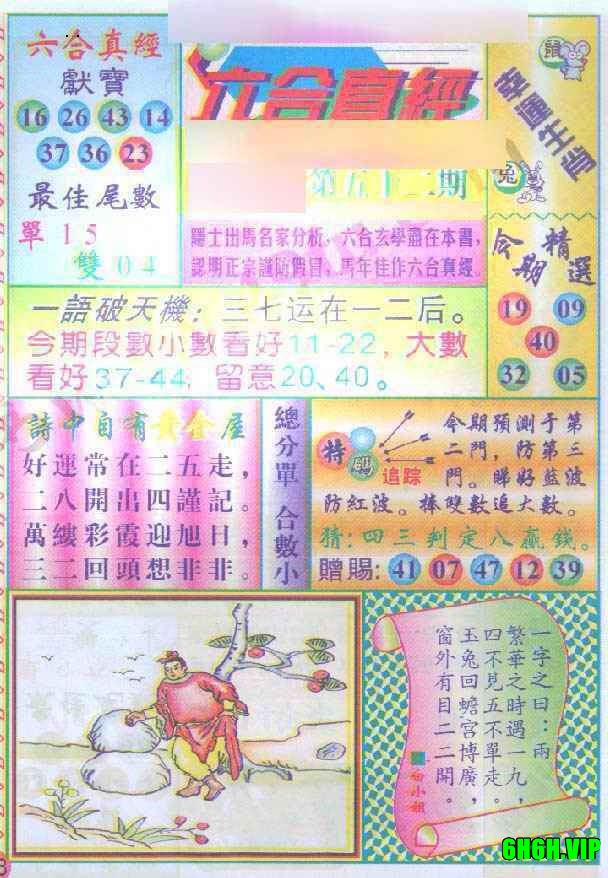 六合真經
獻寶
16 26 43 14
37 36 23
最佳尾數
單 15
雙 04
六合真經
第五十二期
隱士出馬名家分析，六合玄學盡在本書，
認明正宗謹防假冒，馬年佳作六合真經。
鼠
幸運生肖
兔
今期精選
19 09
40
32 05
一語破天機：三七运在一二后。
今期段數小數看好11-22，大數
看好37-44，留意20、40。
詩中自有黃金屋
好運常在二五走，
二八開出四謹記。
萬縷彩霞迎旭日，
三二回頭想非非。
總分單 合數小
特碼
追踪
今期預測于第
二門，防第三
門。睇好藍波
防紅波。棒雙數追大數。
猜：四三判定八贏錢。
贈賜：41 07 47 12 39
一字之曰：兩
繁華之時遇一九，
四不見五不單走。
玉兔回蟾宮博廣，
窗外有目二二開。
白小姐
6H6H.VIP